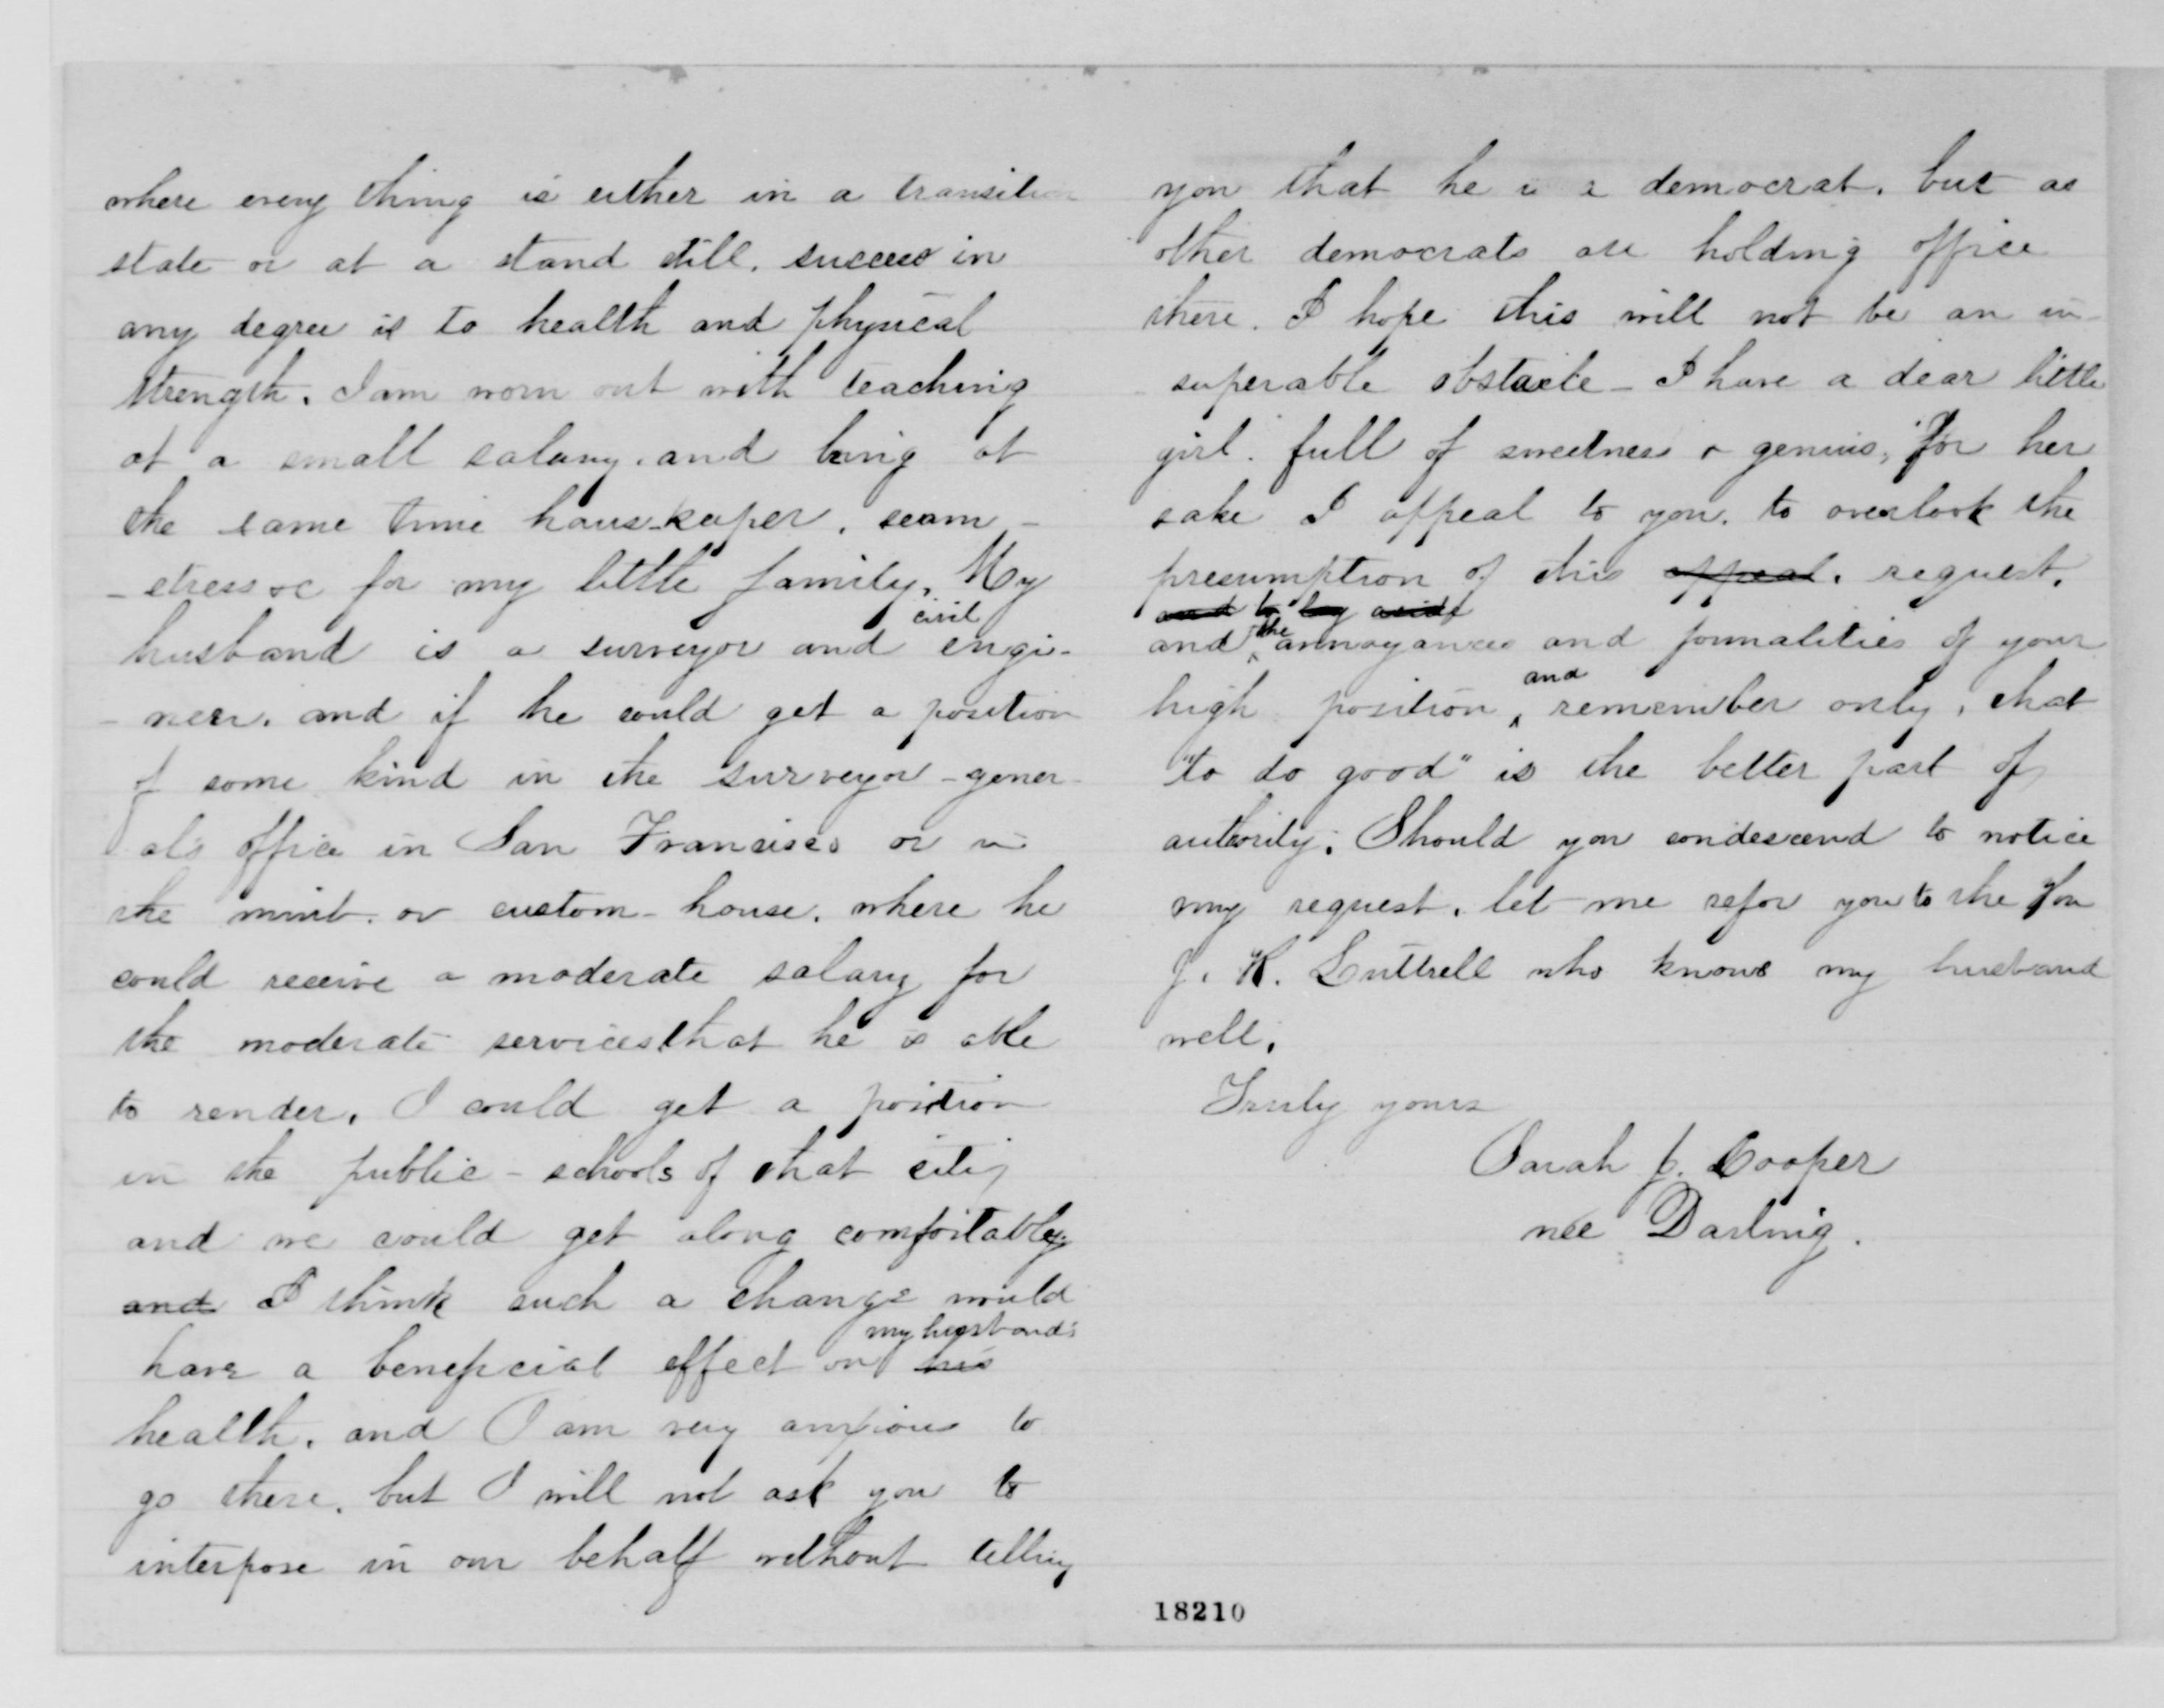 where every thing is either in a transition
state or at a stand still. success in
any degree is to health and physical
strength. I am worn out with teaching
at a small salary, and being at
the same time hous-keeper, seam-
-stress &c for my little family. My
husband is a surveyor and civil engi-
-neer. and if he could get a position
of some kind in the surveyor-gener-
al's office in San Francisco or in
the mint. or custom-house. where he
could receive a moderate salary for
the moderate services that he is able
to render. I could get a position
in the public-schools of that city
and we could get along comfortably.
and I think such a change would
have a beneficial effect on his my husband's
health. and I am very anxious to
go there. but I will not ask you to
interpose in our behalf without telling
you that he is a democrat. but as
other democrats are holding office
there. I hope this will not be an in-
-superable obstacle - I have a dear little
girl. full of sweetness & genius, for her
sake I appeal to you. to overlook the
presumption of this appeal. request.
and to lay aside
and the annoyances and formalities of your
high position, and remember only, that
"to do good" is the better part of
authority. Should you condescend to notice
my request. let me refer you to the Hon
J. K. Luttrell who knows my husband
well.
Truly yours
Sarah J. Cooper
née Darling.
18210